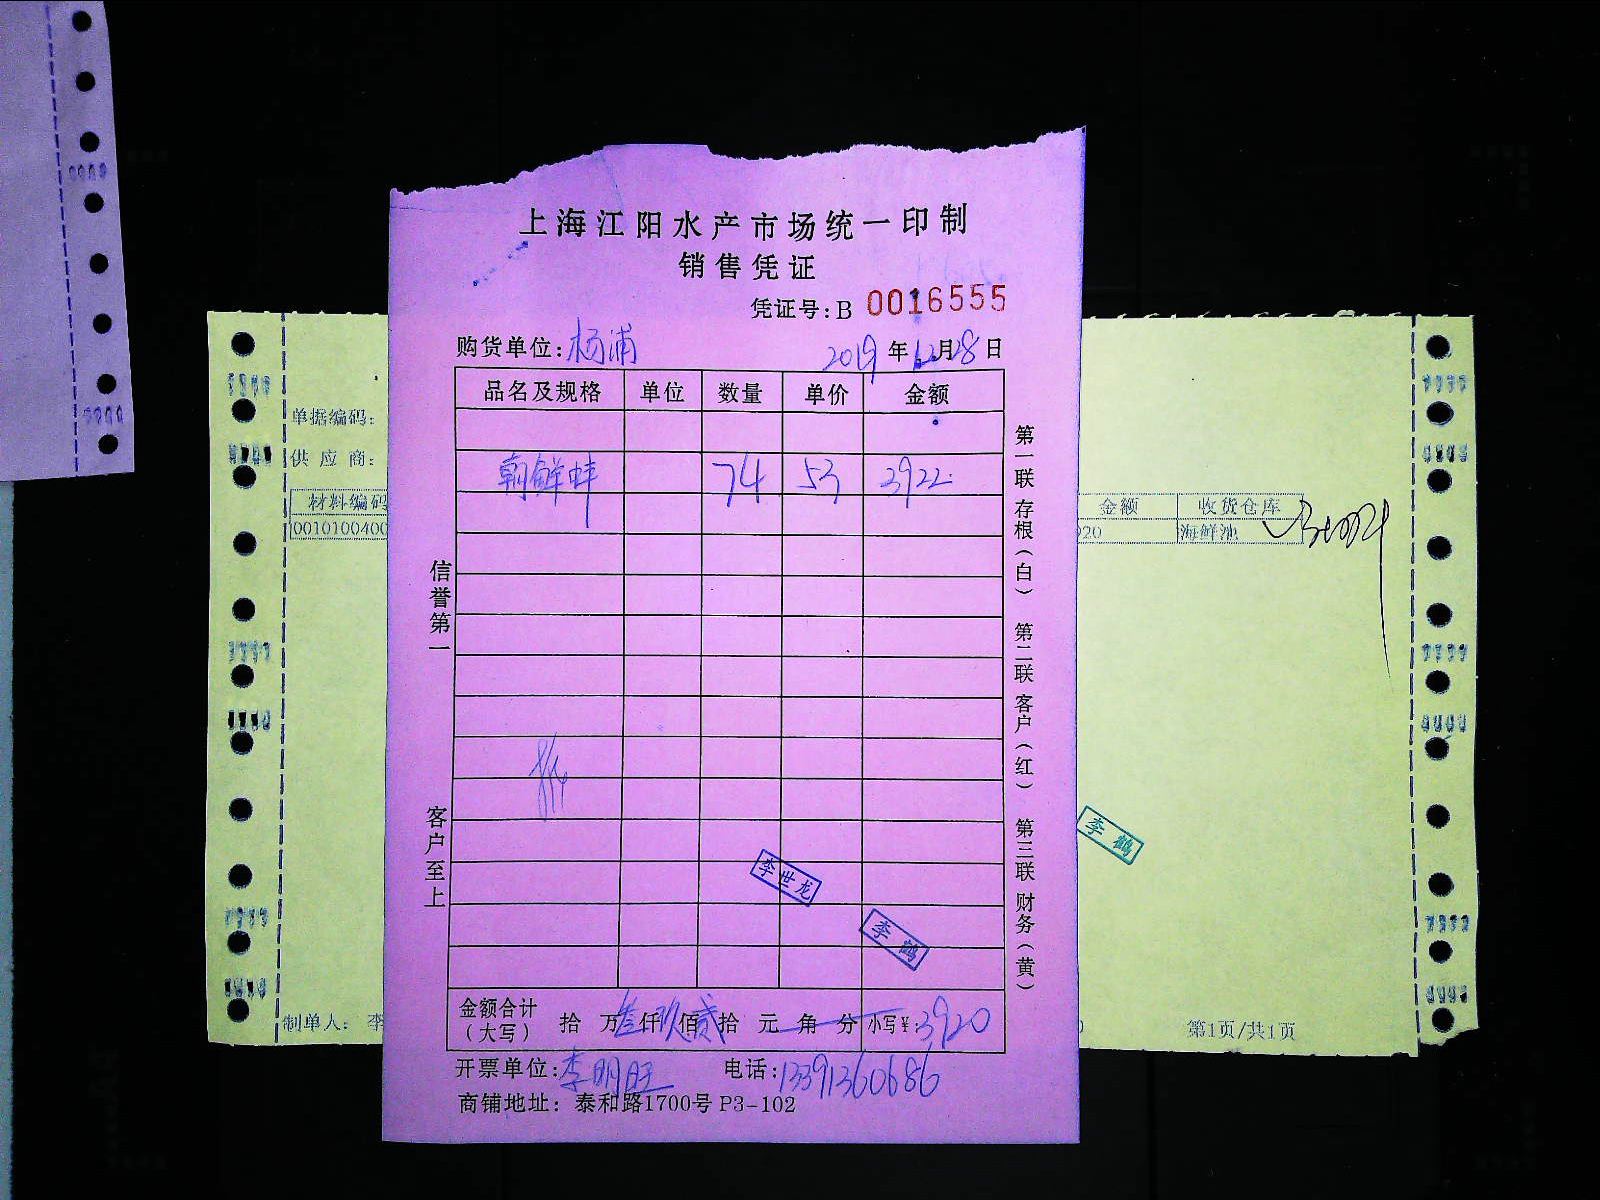 上海江阳水产市场统一印制
销售凭证
凭证号:B 0016555
购货单位:杨浦 2019年12月28日
品名及规格 单位 数量 单价 金额
朝鲜蚌 74 53 3922
金额合计(大写) 拾 万叁仟玖佰贰拾 元 角 分 小写¥:3920
开票单位:李明旺 电话:13391360686
商铺地址: 泰和路1700号 P3-102
信誉第一
客户至上
第一联 存根(白) 第二联 客户(红) 第三联 财务(黄)
李世龙
李鹤
单据编码:
供应商:
材料编码
0010100400
制单人: 李
金额 收货仓库
920 海鲜池
李鹤
第1页/共1页